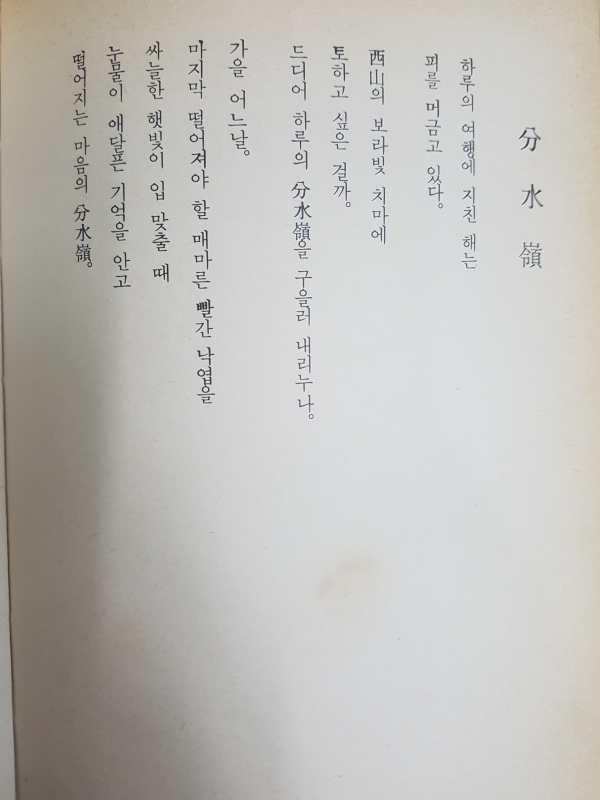 分水嶺
하루의 여행에 지친 해는
피를 머금고 있다。
西山의 보라빛 치마에
토하고 싶은 걸까。
드디어 하루의 分水嶺을 구을러 내리누나。
가을 어느날。
마지막 떨어져야 할 매마른 빨간 낙엽을
싸늘한 햇빛이 입 맞출 때
눈물이 애달픈 기억을 안고
떨어지는 마음의 分水嶺。